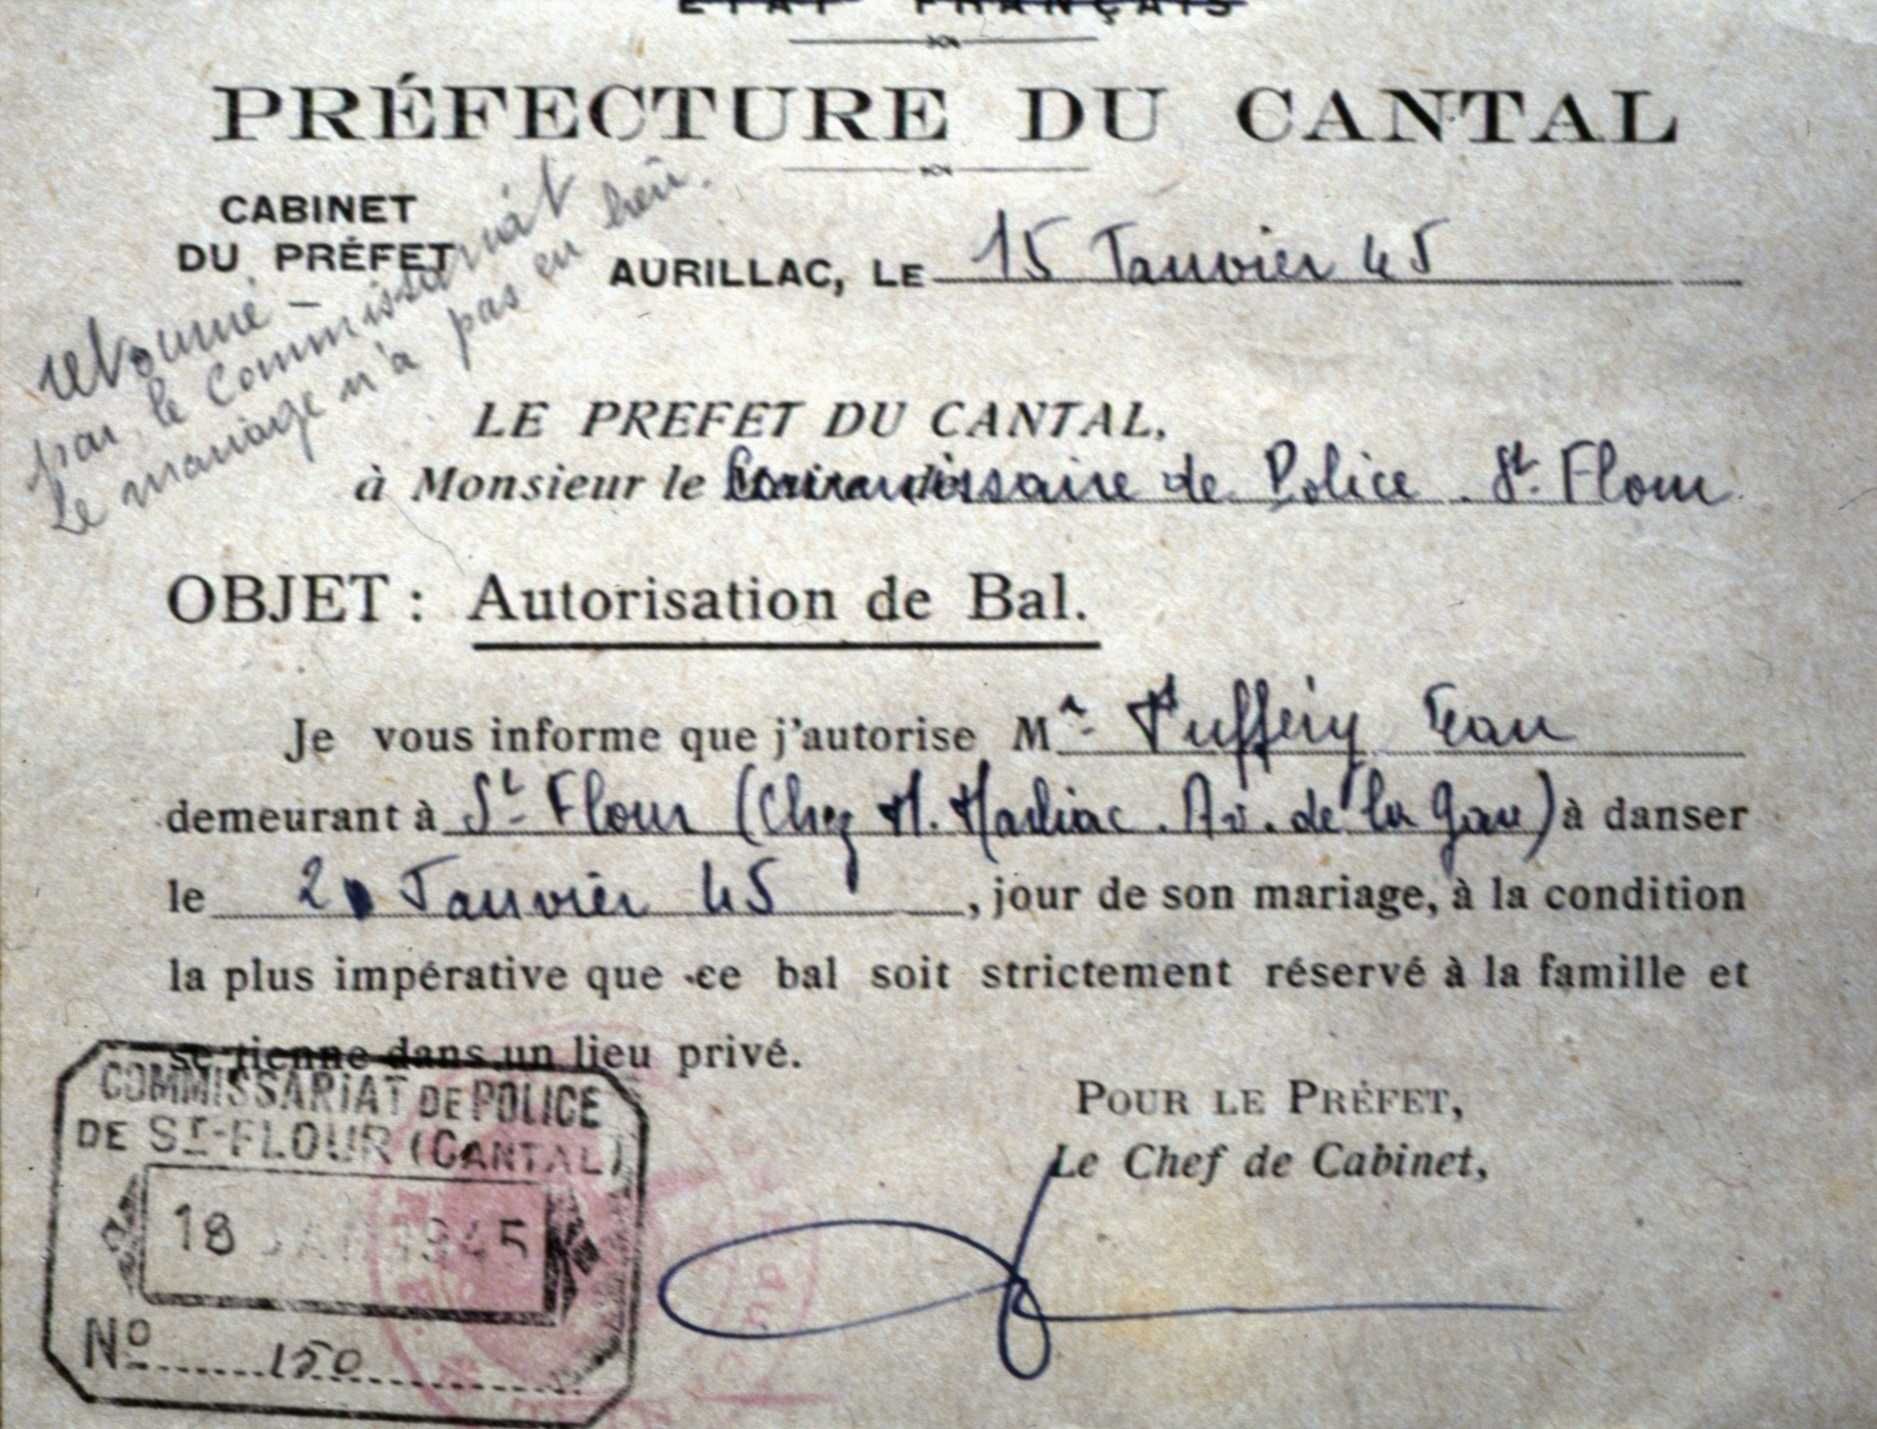 ÉTAT FRANÇAIS
PRÉFECTURE DU CANTAL
CABINET
DU PRÉFET
AURILLAC, LE 15 Janvier 45
retourné -
par le Commissariat
Le mariage n'a pas eu lieu.
LE PREFET DU CANTAL,
à Monsieur le Commissaire de Police St. Flour
OBJET : Autorisation de Bal.
Je vous informe que j'autorise Mr Puffeny Jean
demeurant à St Flour (Chez M. Marliac. Av. de la Gare) à danser
le 20 Janvier 45, jour de son mariage, à la condition
la plus impérative que ce bal soit strictement réservé à la famille et
se tienne dans un lieu privé.
POUR LE PRÉFET,
Le Chef de Cabinet,
COMMISSARIAT DE POLICE
DE ST-FLOUR (CANTAL)
18 JAN 1945
No 150